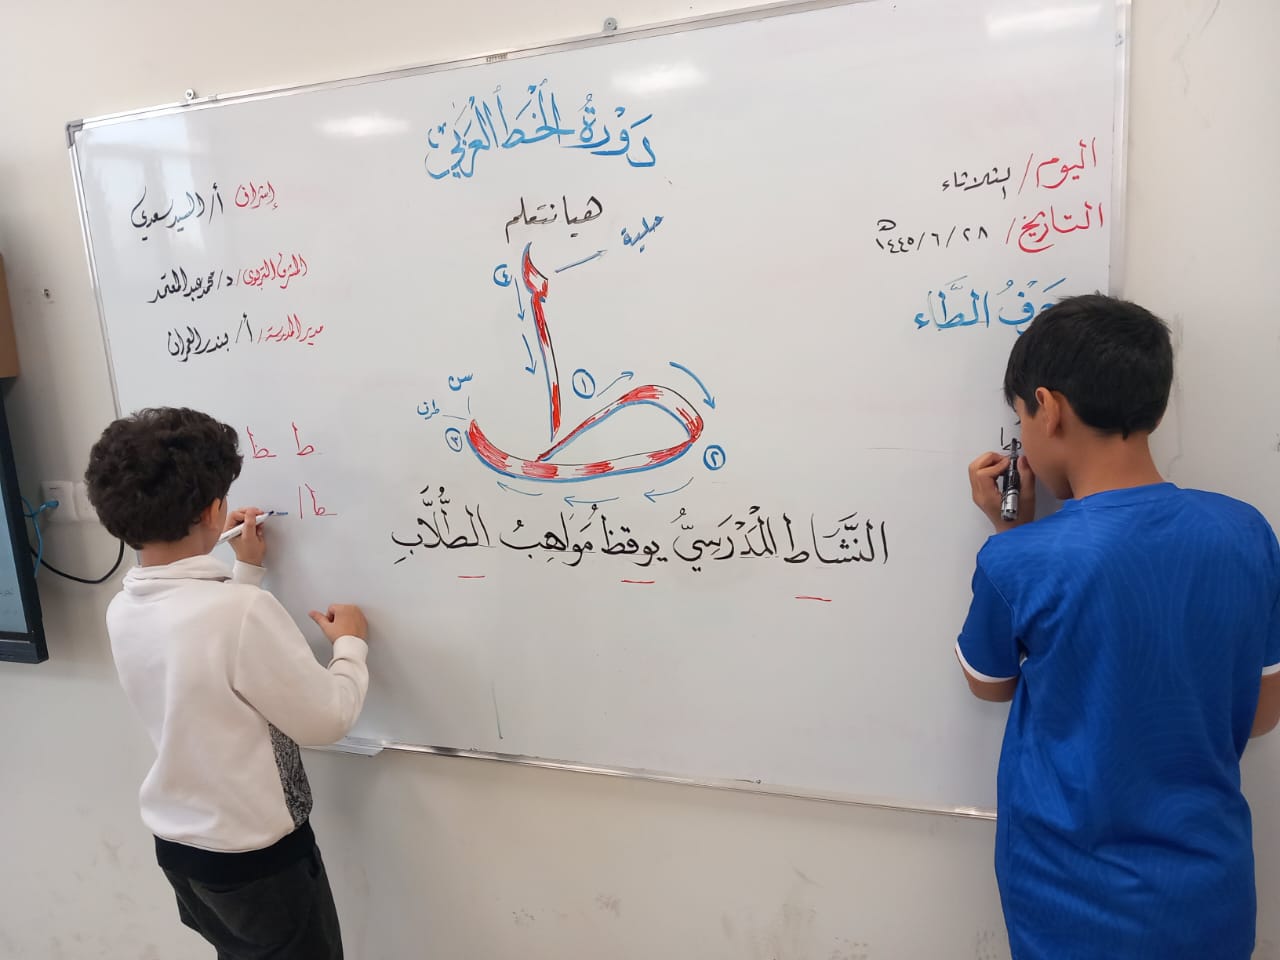 دَوْرَةُ الخَطِّ العَرَبِيِّ
اليوم/ الثلاثاء
التاريخ/ ٢٨/ ٦/ ١٤٤٥ هـ
حَرْفُ الطَّاء
إشراف أ/ السيد سعدي
المشرف التربوي/ د/ محمد عبد المعتمد
مدير المدرسة/ أ/ بندر العمران
هيا نتعلم
حلية
٤
١
سن
طرف
٣
٢
ط
ط
ط
ط ا
النَّشَاط المَدْرَسِيُّ يوقظ مَوَاهِبُ الطُّلَّابِ